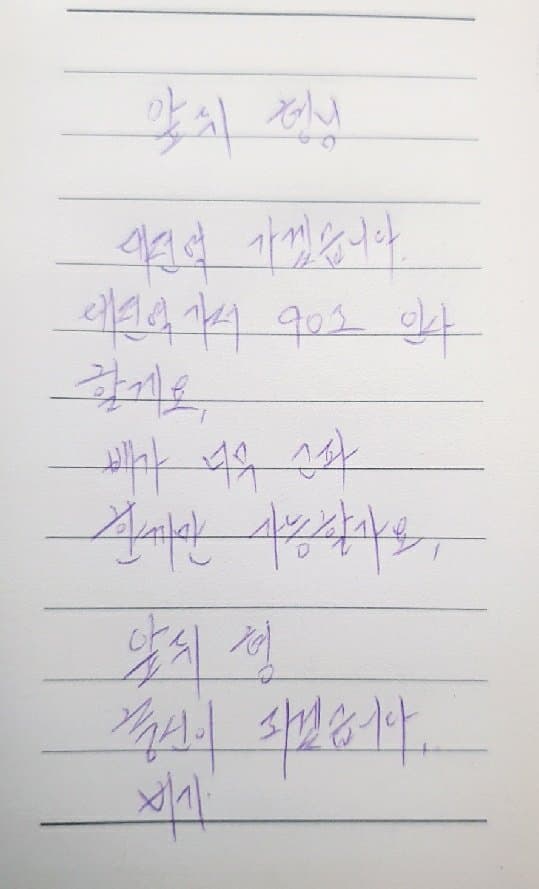 앞뒤 형님
대전역 가겠습니다.
대전역 가서 90도 인사
할게요,
배가 너무 고파
한끼만 가능할가요,
앞뒤 형
종신이 되겠습니다,